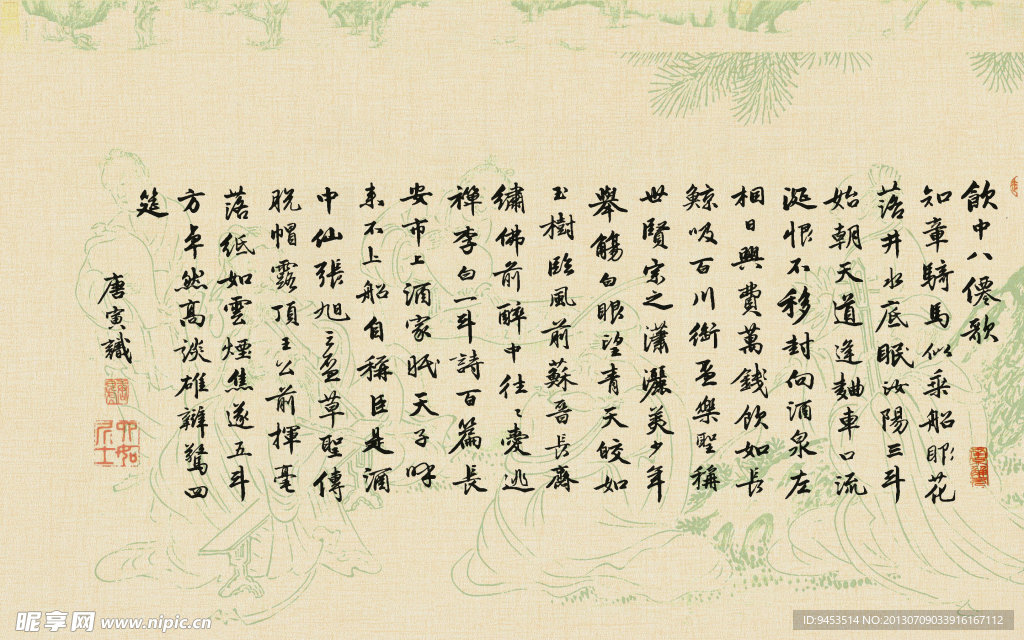 飲中八僊歌
知章騎馬似乘船眼花
落井水底眠汝陽三斗
始朝天道逢麯車口流
涎恨不移封向酒泉左
相日興費萬錢飲如長
鯨吸百川銜盃樂聖稱
世賢宗之瀟灑美少年
舉觴白眼望青天皎如
玉樹臨風前蘇晉長齋
繡佛前醉中往々愛逃
禪李白一斗詩百篇長
安市上酒家眠天子呼
來不上船自稱臣是酒
中仙張旭三盃草聖傳
脫帽露頂王公前揮毫
落紙如雲煙焦遂五斗
方卓然高談雄辯驚四
筵
唐寅識
六如居士
昵享网 www.nipic.cn
ID:9453514 NO:20130709033916167112